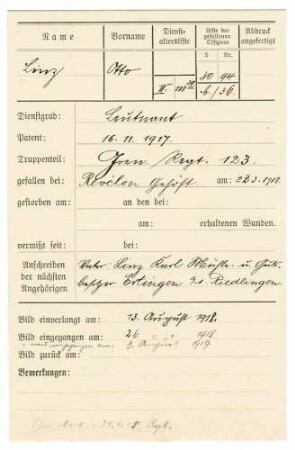 Name Vorname Dienstaltersliste Liste der gefallenen Offiziere Abdruck angefertigt
S Nr.
Linz Otto 80 94
II. 6/36.
Dienstgrad: Leutnant
Patent: 16. 11. 1917.
Truppenteil: Gren. Regt. 123.
gefallen bei: Revelon Gehöft am: 22.3.1918.
gestorben am: an den bei:
am: erhaltenen Wunden.
vermißt seit: bei:
Anschreiben der nächsten Angehörigen
Vater: Linz Karl u. Guts-
besitzer Ertingen Riedlingen
Bild einverlangt am: 13. August 1918.
Bild eingegangen am: 26. " 1918
2. August 1919
Bild zurück am:
Bemerkungen: